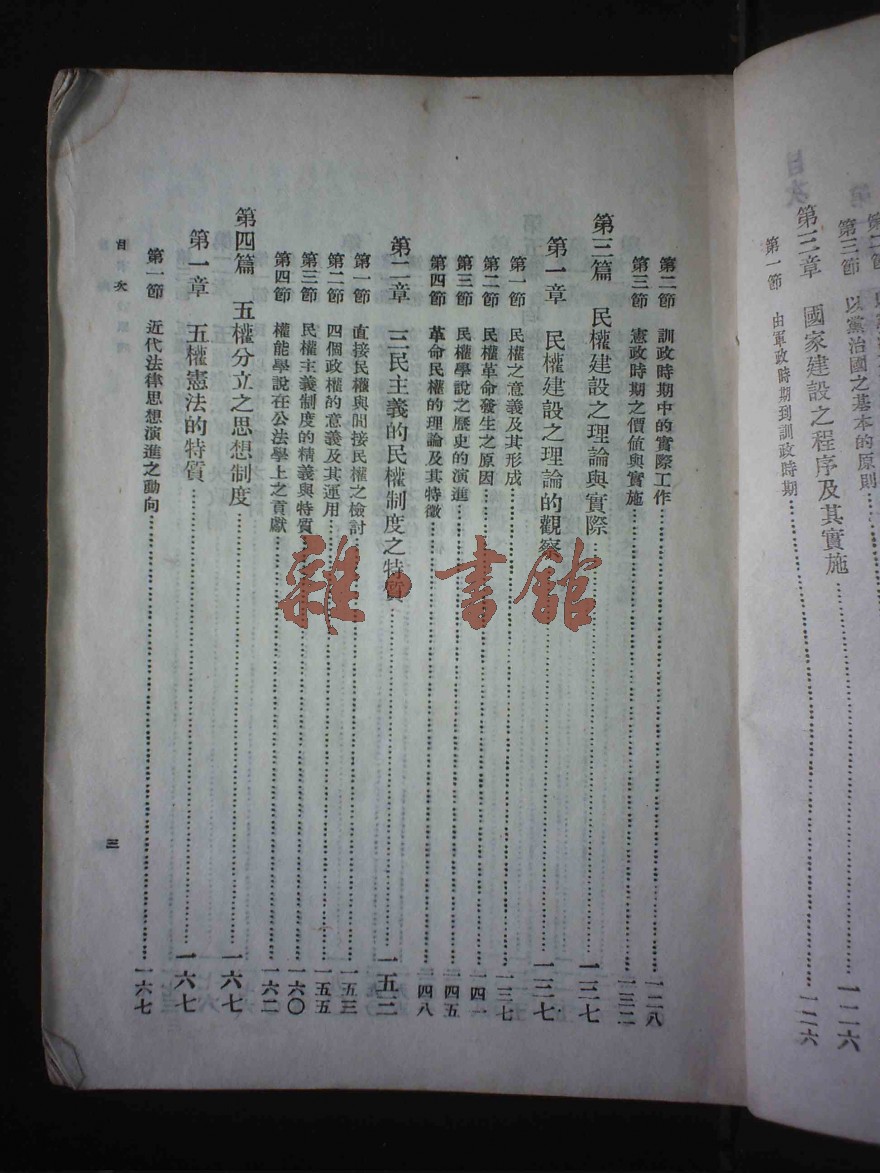 目次
第三節 以黨治國之基本的原則
第三章 國家建設之程序及其實施……一二六
第一節 由軍政時期到訓政時期……一二六
第二節 訓政時期中的實際工作……一二八
第三節 憲政時期之價値與實施……一三二
第三篇 民權建設之理論與實際……一三七
第一章 民權建設之理論的觀察……一三七
第一節 民權之意義及其形成……一三七
第二節 民權革命發生之原因……一四一
第三節 民權學說之歷史的演進……一四五
第四節 革命民權的理論及其特徵……一四八
第二章 三民主義的民權制度之特質……一五三
第一節 直接民權與間接民權之檢討……一五三
第二節 四個政權的意義及其運用……一五五
第三節 民權主義制度的精義與特質……一六〇
第四節 權能學說在公法學上之貢獻……一六二
第四篇 五權分立之思想制度……一六七
第一章 五權憲法的特質……一六七
第一節 近代法律思想演進之動向……一六七
目次
三
雜·書館